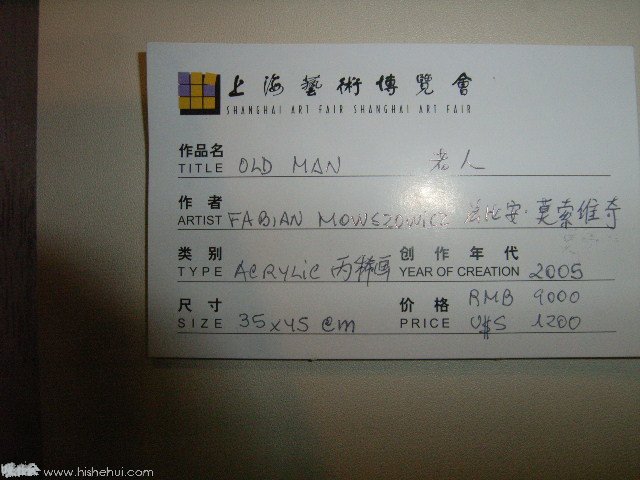 上海藝術博覽會
SHANGHAI ART FAIR SHANGHAI ART FAIR
作品名 TITLE OLD MAN 老人
作者 ARTIST FABIAN MOWSZOWICZ 法比安·莫索维奇
类别 TYPE ACRYLIC 丙稀画 创作年代 YEAR OF CREATION 2005
尺寸 SIZE 35x45 cm 价格 PRICE RMB 9000
U$S 1200
www.hishehui.com